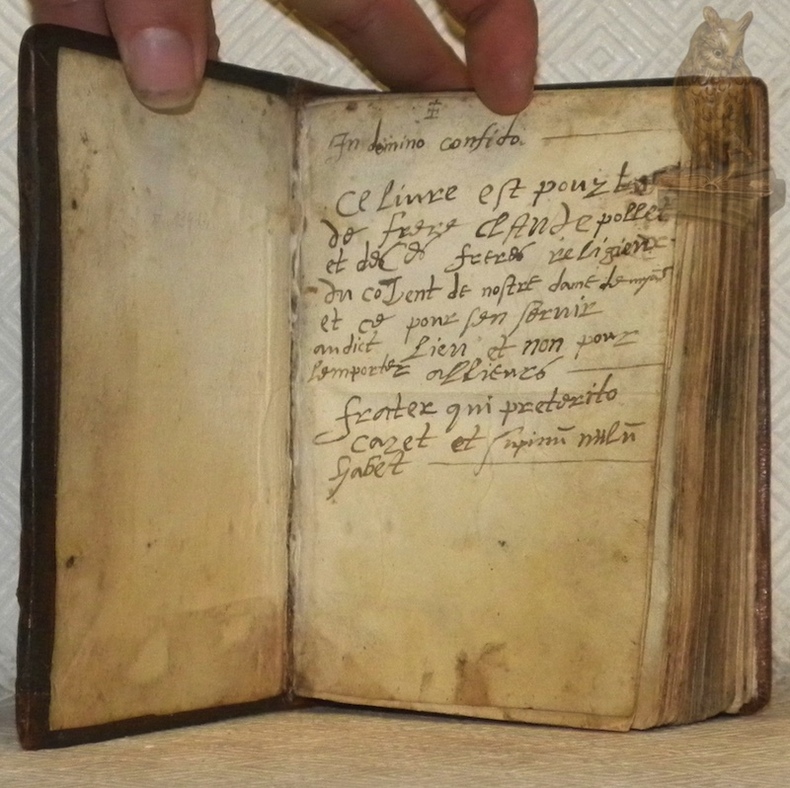 In domino confido.
Ce liure est pour
de frere CLAUDE pollet
et des freres religieux
du couent de nostre dame de
et ce pour sen seruir
audict Lieu et non pour
lemporter allieurs
frater qui preterito
caret et supinū nulū
habet